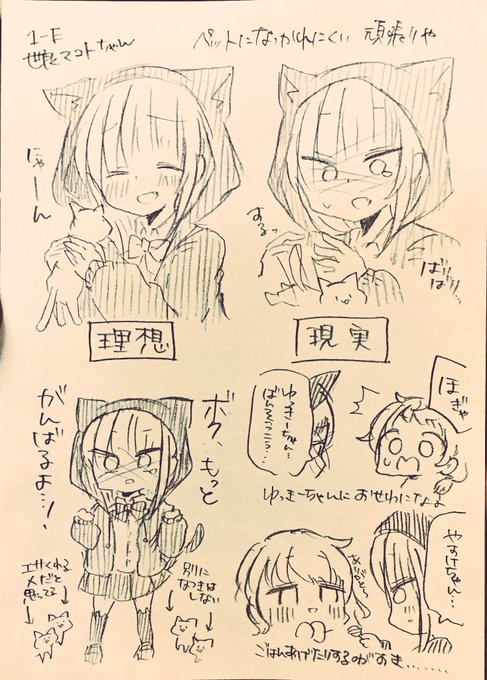 1-E
マコトちゃん
ペットになつかれにくい 頑張りや
にゃーん
するっ
ばりばり…
理想
現実
ボク、もっと
がんばるよ…!
エサくれる
人だと
思ってる
別に
なつきは
しない
ゆっきーちゃん…
ばんそうこう…
ほぎゃ
ゆっきーちゃんにおせわになるよ
やすけちゃん…
ありがとう
ごはんあげたりするのがすき……